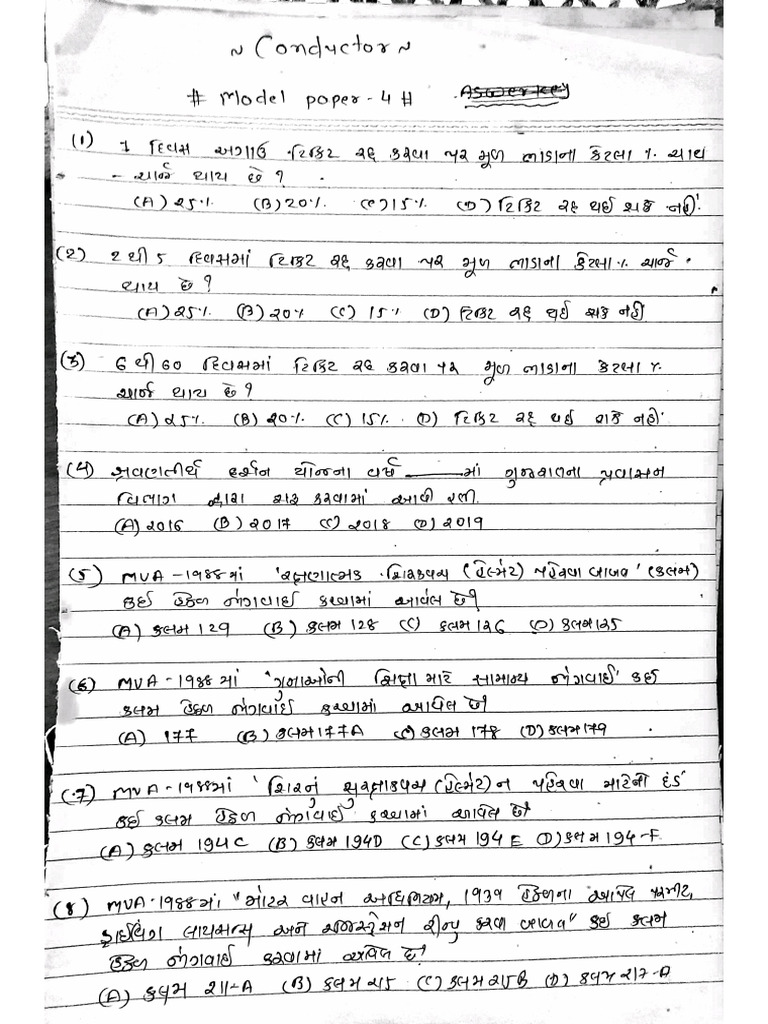 ~ Conductor ~
# Model paper - 4 #
Aswer key
(1) 1 દિવસ અગાઉ ટિકિટ રદ્દ કરવા પર મૂળ ભાડાના કેટલા % ચાય
ચાર્જ થાય છે ?
(A) 25% (B) 20% (C) 15% (D) ટિકિટ રદ્દ થઈ શકે નહીં.
(2) 2 થી 5 દિવસમાં ટિકિટ રદ્દ કરવા પર મૂળ ભાડાના કેટલા % ચાર્જ
થાય છે ?
(A) 25% (B) 20% (C) 15% (D) ટિકિટ રદ્દ થઈ શકે નહીં
(3) 6 થી 60 દિવસમાં ટિકિટ રદ્દ કરવા પર મૂળ ભાડાના કેટલા %
ચાર્જ થાય છે ?
(A) 25% (B) 20% (C) 15% (D) ટિકિટ રદ્દ થઈ શકે નહીં.
(4) શ્રવણતીર્થ દર્શન યોજના વર્ષ ____માં ગુજરાતના પ્રવાસન
વિભાગ દ્વારા શરૂ કરવામાં આવી હતી.
(A) 2016 (B) 2017 (C) 2018 (D) 2019
(5) MVA - 1988માં 'રક્ષણાત્મક શિરકવચ (હેલ્મેટ) પહેરવા બાબત' (કલમ)
કઈ હેઠળ જોગવાઈ કરવામાં આવેલ છે?
(A) કલમ 129 (B) કલમ 128 (C) કલમ 126 (D) કલમ 125
(6) MVA - 1988 માં 'ગુનાઓની શિક્ષા માટે સામાન્ય જોગવાઈ' કઈ
કલમ હેઠળ જોગવાઈ કરવામાં આવેલ છે?
(A) 177 (B) કલમ 177A (C) કલમ 178 (D) કલમ 179
(7) MVA - 1988માં 'શિરનું સુરક્ષાકવચ (હેલ્મેટ) ન પહેરવા માટેની દંડ'
કઈ કલમ હેઠળ જોગવાઈ કરવામાં આવેલ છે?
(A) કલમ 194C (B) કલમ 194D (C) કલમ 194 E (D) કલમ 194-F
(8) MVA - 1988માં "મોટર વાહન અધિનિયમ, 1939 હેઠળના આપેલ પરમીટ,
ડ્રાઈવિંગ લાયસન્સ અને રજીસ્ટ્રેશન રીન્યુ કરવા બાબત" કઈ કલમ
હેઠળ જોગવાઈ કરવામાં આવેલ છે?
(A) કલમ 211-A (B) કલમ 215 (C) કલમ 215B (D) કલમ 217-A